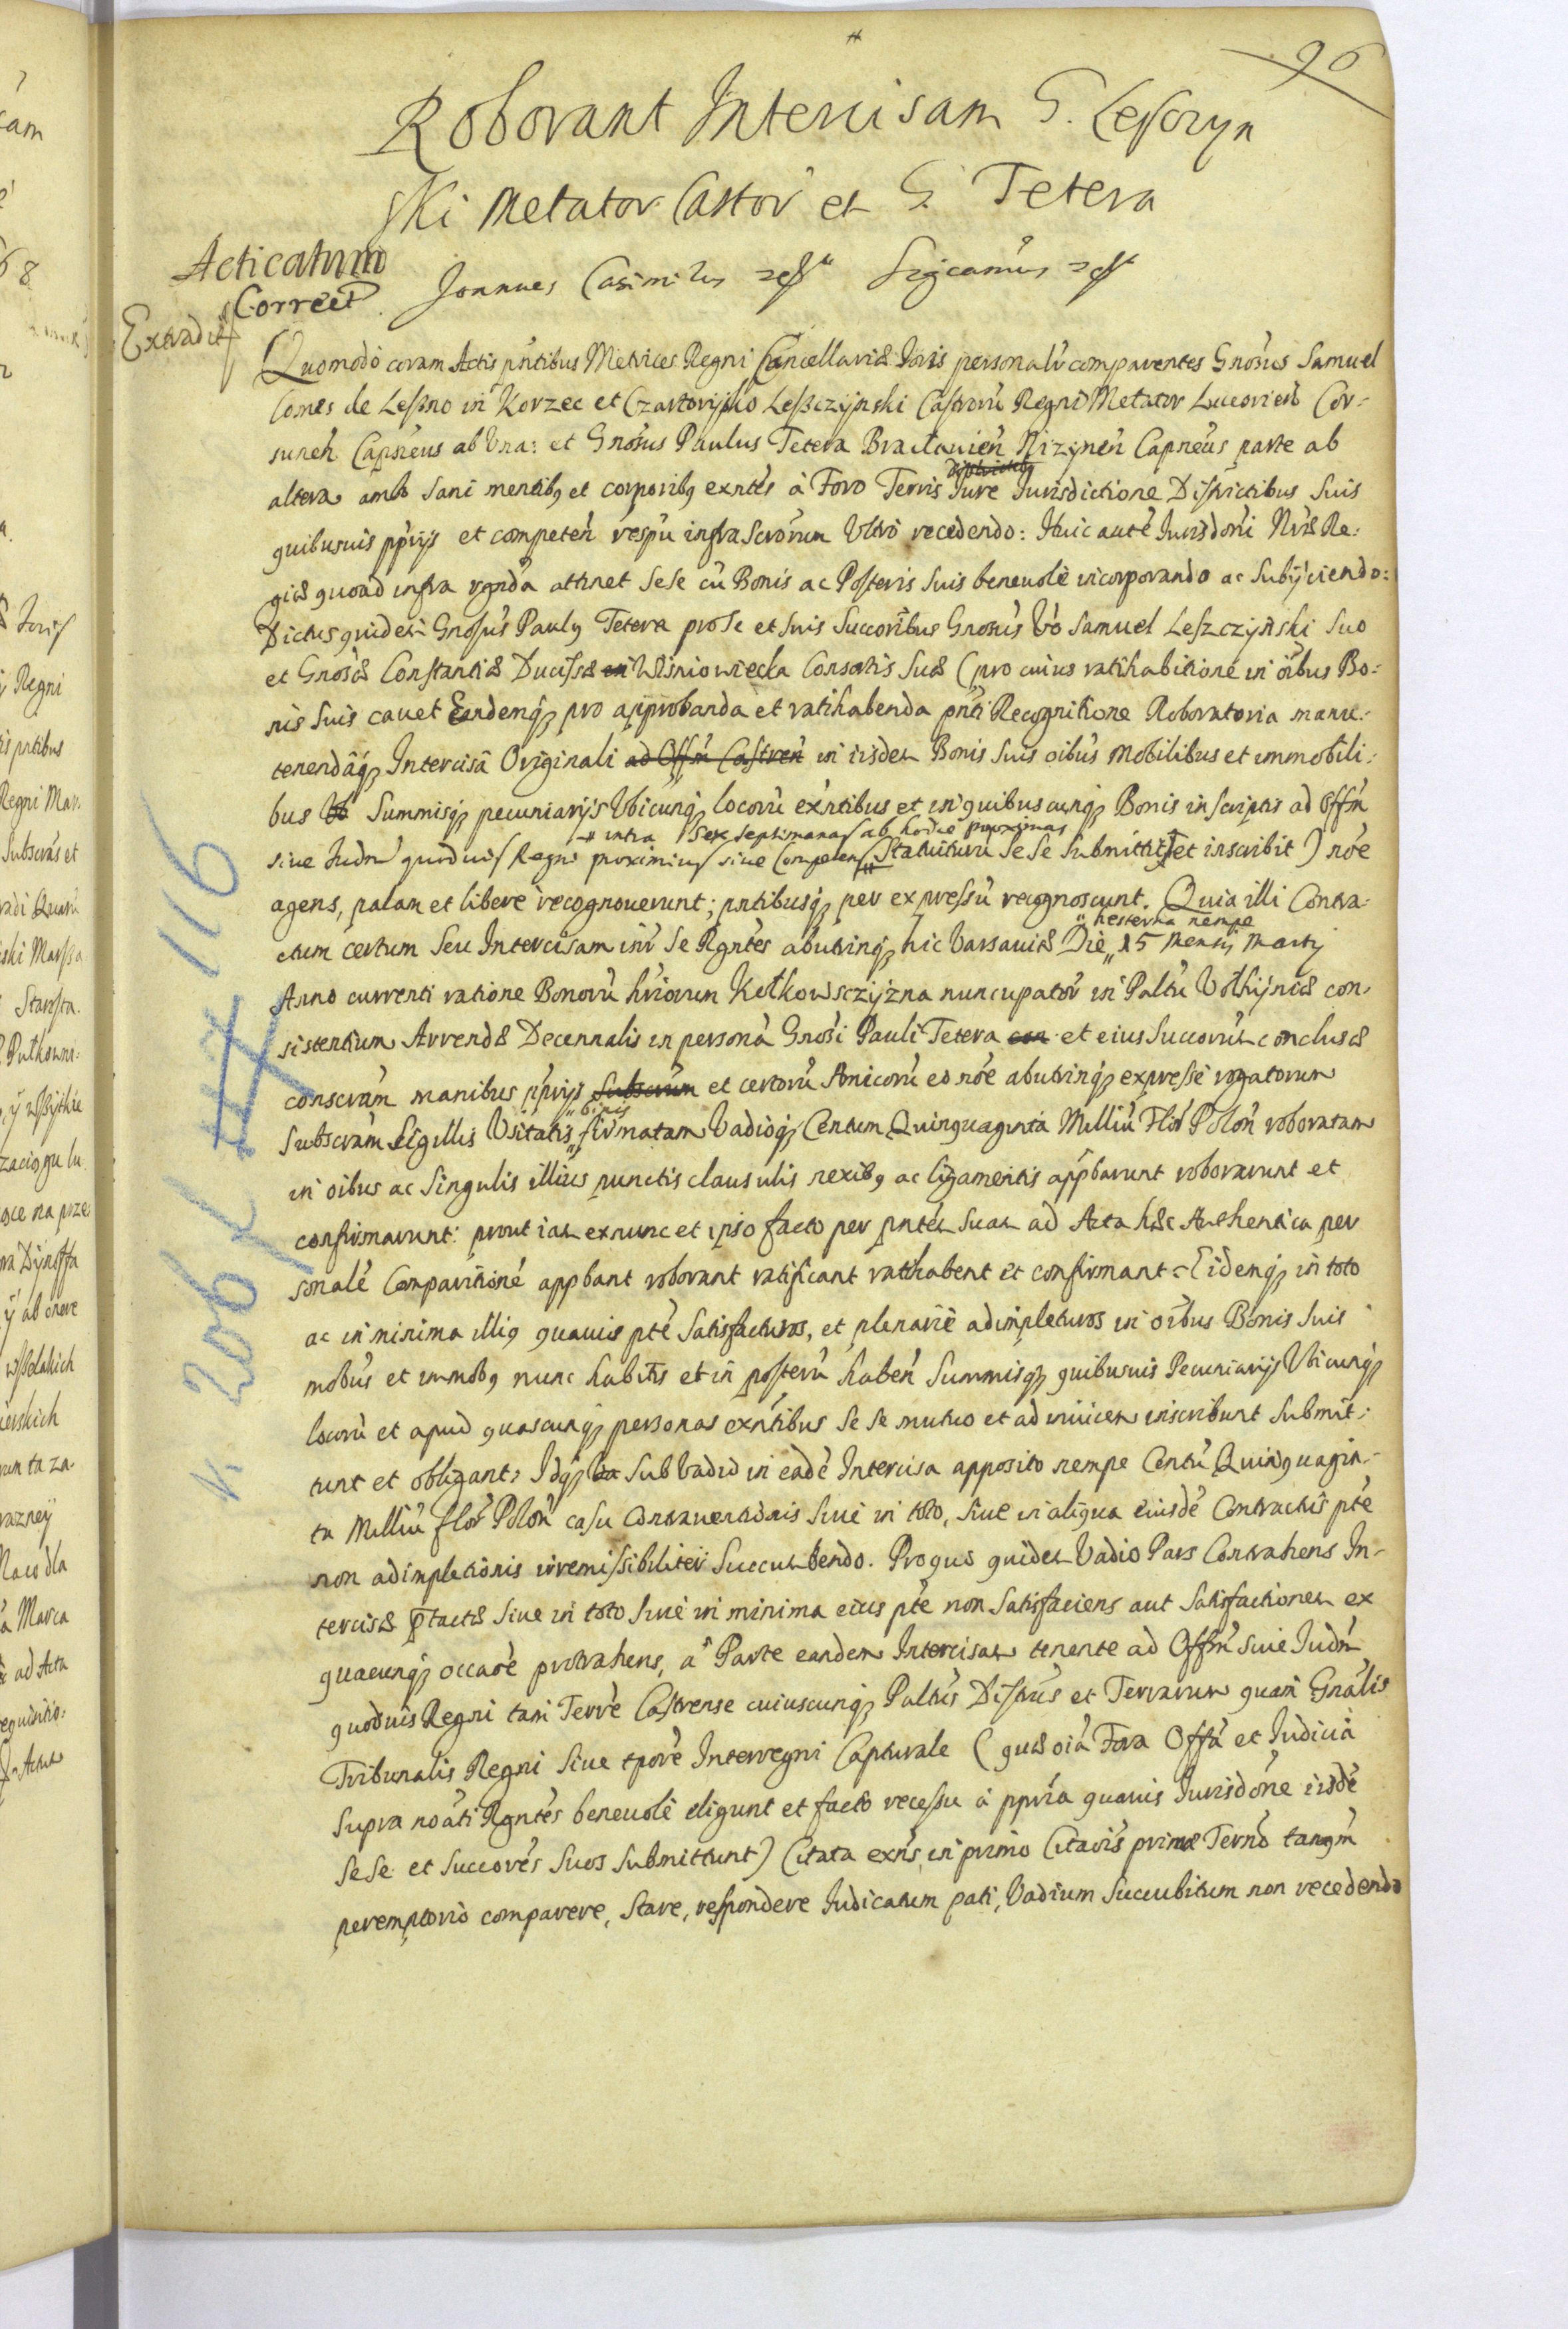 96
Roborant Intercisam G. Leszczyn
ski Metator Castror et G. Tetera
Acticatum
Correct
Extradit
Joannes Casimirus etc Significamus etc
Quomodo coram Actis pntibus Metrices Regni Cancellariæ Nris personalr comparentes Gnosus Samuel
Comes de Leszno in Korzec et Czartoryisko Leszczyński Castroru Regni Metator Luceorien Cor-
sunen Capneus ab Una: et Gnosus Paulus Tetera Braclavien Nizynen Capneus parte ab
altera ambo sani mentibq et corporibq exntes à Foro Terris Jure Jurisdictione Districtibus suis
quibusuis pprijs et competen respu infra Scrorum Ultro recedendo: Huic autē Jurisdoni Nræ Re:
giæ quoad infra rgnda attinet sese cū Bonis ac Posteris suis beneuolè incorporando ac subijciendo:
Dictus quidem Gnosus Paulq Tetera pro se et suis succoribus Gnosus Vo Samuel Leszczyński suo
et Gnosæ Constantiæ Ducissæ in Wisniowiecka Consortis suæ (pro cuius ratihabitione in oibus Bo:
nis suis cauet Eandemq pro approbanda et ratihabenda pnti Recognitione Roboratoria manu-
tenendāq Intercisā Originali ad Offm Castren in iisdem Bonis suis oibus mobilibus et immobili:
bus Vb Summisq pecuniarijs Vbicunq locorū exntibus et in quibuscunq Bonis inscriptis ad Offm
intra sex septimanas ab hodie proximas
siue Judm quoduis Regni proximius siue Competens Statuturū se se submittit et inscribit) noe
agens, palam et libere recognouerunt; pntibusq per expressū recognoscunt. Quia illi Contra-
hesterna nempe
ctum certum seu Intercisam intr se Rgntes abutrinq hic Varsauiæ Die 15 Mensis Martij
Anno currenti ratione Bonorū hriorum Kołkowsczyzna nuncupator in Paltu Volhyniæ con-
sistentium Arrendæ Decennalis in personā Gnosi Pauli Tetera con et eius succorum conclusæ
conscram manibus pprijs subscrum et certorū Amicorū eo noe abutrinq expresse rogatorum
binis
subscram Sigillis Usitatis firmatam Vadioq Centum Quinquaginta Milliū Flor Polon roboratam
in oibus ac singulis illius punctis clausulis nexibq ac ligamentis appbarunt roborarunt et
confirmarunt: prout iam exnunc et ipso facto per pntem suam ad Acta hæc Authentica per
sonalē Comparitionē appbant roborant ratificant ratihabent et confirmant. Eidemq in toto
ac in minima illiq quauis pte satisfacturos, et plenariè adimpleturos in oibus Bonis suis
mobus et immobq nunc habitis et in posterū haben Summisq quibusuis Pecuniarijs Vbicunq
locorū et apud quascunq personas exntibus se se mutuo et ad inuicem inscribunt submit-
tunt et obligant; Idq Va sub Vadio in eadē Intercisa apposito nempe Centū Quinquagin-
ta Milliū flor Polon casu contrauentionis siue in toto, siue in aliqua eiusdē Contractus pte
non adimpletionis irremissibiliter succumbendo. Pro quo quidem Vadio Pars Contrahens In-
tercisæ ptactæ siue in toto siue in minima eius pte non satisfaciens aut satisfactionem ex
quacunq occaōe protrahens, à Parte eandem Intercisam tenente ad Offm siue Judm
quoduis Regni tam Terre Castrense cuiuscunq Paltus Distrus et Terrarum quam Gnalis
Tribunalis Regni siue tpore Interregni Capturale (quæ oia Fora Offa et Judicia
supra noati Rgntes beneuolè eligunt et facto recessu à ppria quauis Jurisdone iisdē
sese et succores suos submittunt) Citata exns, in primo Citaois primæ Terno tanqm
peremptorio comparere, stare, respondere Judicatum pati, Vadium succubitum non recedendo
k. 206 r 116